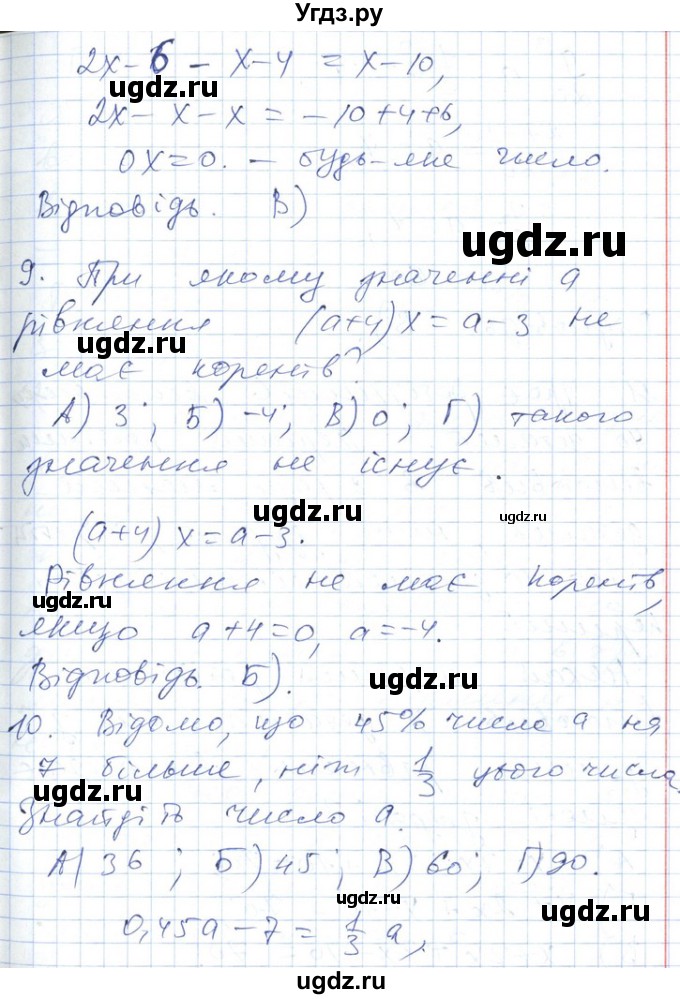 Угдз.ру
2x-6 - x-4 = x-10,
2x- x-x = -10+4+6,
0x=0. - будь-яке число.
Відповідь. В)
ugdz.ru
9. При якому значенні а
рівняння (a+4)x=a-3 не
ugdz.ru
має коренів?
А) 3; Б) -4; В) 0; Г) такого
значення не існує.
ugdz.ru
ugdz.ru
(a+4)x=a-3.
Рівняння не має коренів,
ugdz.ru
якщо a+4=0, a=-4.
ugdz.ru
Відповідь. Б).
10. Відомо, що 45% числа а на
7 більше, ніж 1/3 цього числа.
ugdz.ru
Знайдіть число а.
ugdz.ru
А) 36; Б) 45; В) 60; Г) 90.
0,45a-7= 1/3 a,
ugdz.ru
ugdz.ru